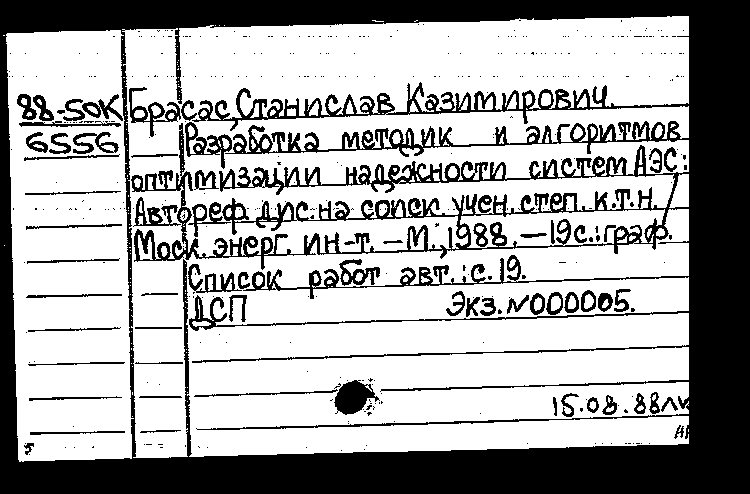 88-50К Брасас, Станислав Казимирович.
6556 Разработка методик и алгоритмов
оптимизации надежности систем АЭС:
Автореф. дис. на соиск. учен. степ. к.т.н. /
Моск. энерг. ин-т. – М., 1988. – 19с.: граф.
Список работ авт.: с. 19.
ДСП Экз. N000005.
15.08.88
5